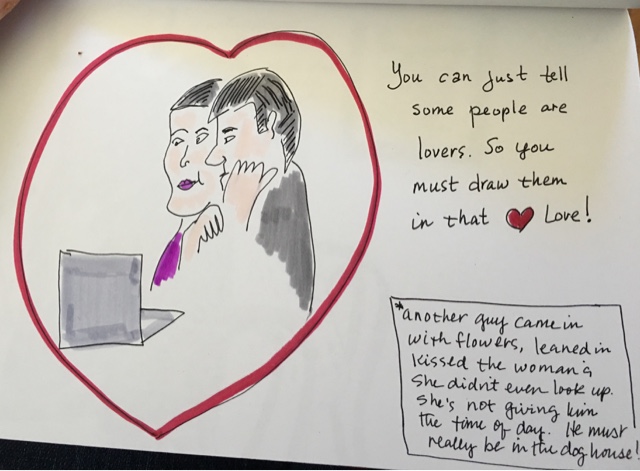 You can just tell
some people are
lovers. So you
must draw them
in that ❤ Love!
*another guy came in
with flowers, leaned in
kissed the woman &
she didn't even look up.
She's not giving him
the time of day. He must
really be in the dog house!